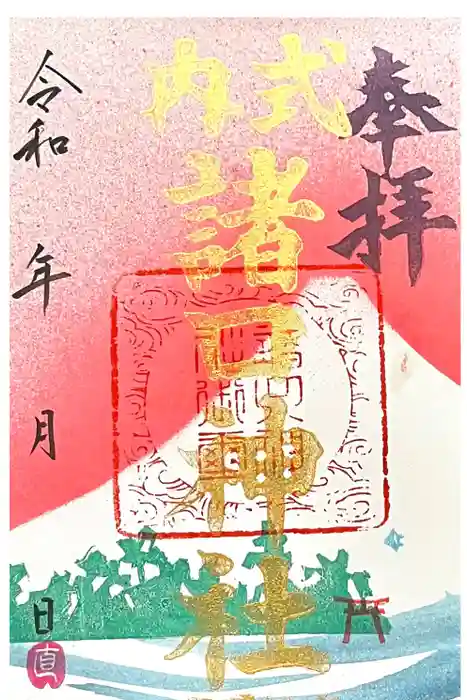 奉拝
式内
諸口神社
令和 年 月 日
直